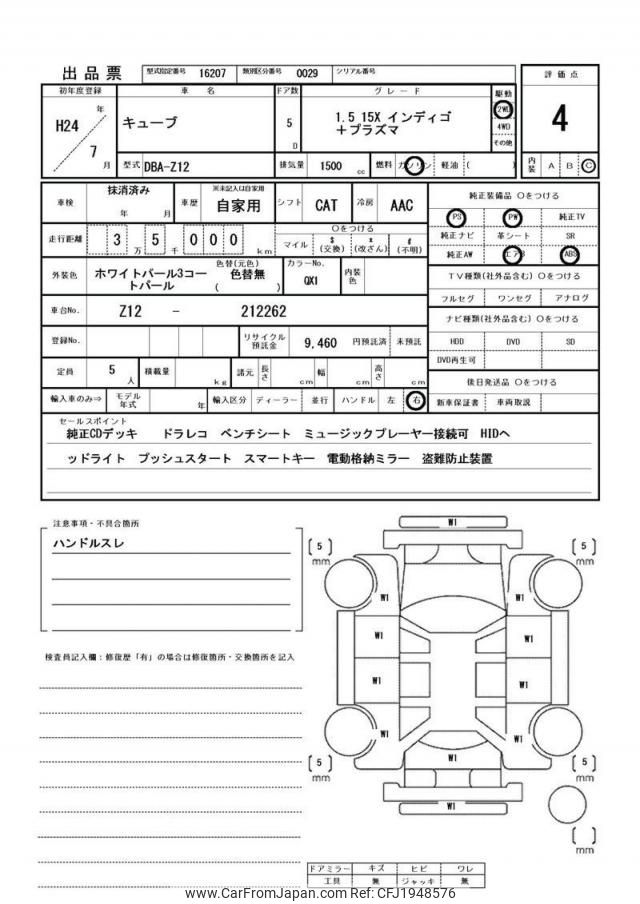 出品票 型式指定番号 16207 類別区分番号 0029 シリアル番号
評価点
4
内装 A B C
初年度登録 車名 ドア数 グレード 駆動
H24 年 7 月
キューブ
5 D
1.5 15X インディゴ
＋プラズマ
2WD
4WD
その他
型式 DBA-Z12 排気量 1500 cc 燃料 ガソリン 軽油 ( )
車検 抹消済み 年 月 車歴 ※未記入は自家用 自家用 シフト CAT 冷房 AAC
走行距離 3 万 5 千 0 0 0 km
○をつける
マイル $(交換) *(改ざん) #(不明)
外装色 ホワイトパール3コー
トパール
色替(元色)
色替無
( )
カラーNo.
QX1
内装色
車台No. Z12 - 212262
登録No. リサイクル預託金 9,460 円預託済 未預託
定員 5 人 積載量 kg 諸元 長さ cm 幅 cm 高さ cm
輸入車のみ⇒ モデル年式 年 輸入区分 ディーラー 並行 ハンドル 左 右
純正装備品 ○をつける
PS PW 純正TV
純正ナビ 革シート SR
純正AW エアB ABS
TV種類(社外品含む) ○をつける
フルセグ ワンセグ アナログ
ナビ種類(社外品含む) ○をつける
HDD DVD SD
DVD再生可
後日発送品 ○をつける
新車保証書 車両取説
セールスポイント
純正CDデッキ ドラレコ ベンチシート ミュージックプレーヤー接続可 HIDヘ
ッドライト プッシュスタート スマートキー 電動格納ミラー 盗難防止装置
注意事項・不具合箇所
ハンドルスレ
検査員記入欄：修復歴「有」の場合は修復箇所・交換箇所を記入
W1
[5] mm
[5] mm
W1
W1
W1
W1
W1
W1
W1
W1
W1
[5] mm
[5] mm
W1
[ ] mm
ドアミラー キズ ヒビ ワレ
工具 無 ジャッキ 無
www.CarFromJapan.com - Ref No: CFJ1948576